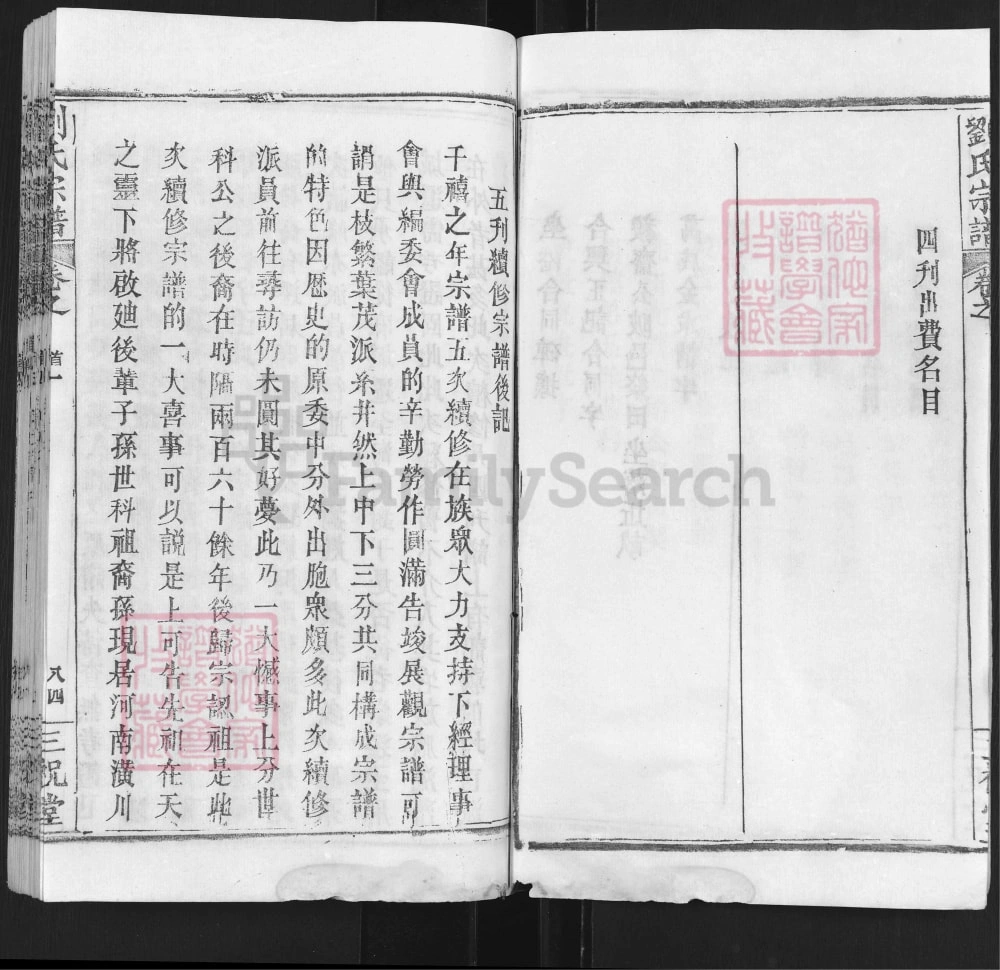 劉氏宗譜
卷之
四刊出費名目
五刊續修宗譜後記
千禧之年宗譜五次續修在族眾大力支持下經理事
會與編委會成員的辛勤勞作圓滿告竣展觀宗譜可
謂是枝繁葉茂派系井然上中下三分共同構成宗譜
的特色因歷史的原委中分外出胞眾頗多此次續修
派員前往尋訪仍未圓其好夢此乃一大憾事上分世
科公之後裔在時隔兩百六十餘年後歸宗認祖是此
次續修宗譜的一大喜事可以說是上可告先祖在天
之靈下將啟廸後輩子孫世科祖裔孫現居河南潢川
劉氏宗譜
卷之
首一
八四
三祝堂
FamilySearch